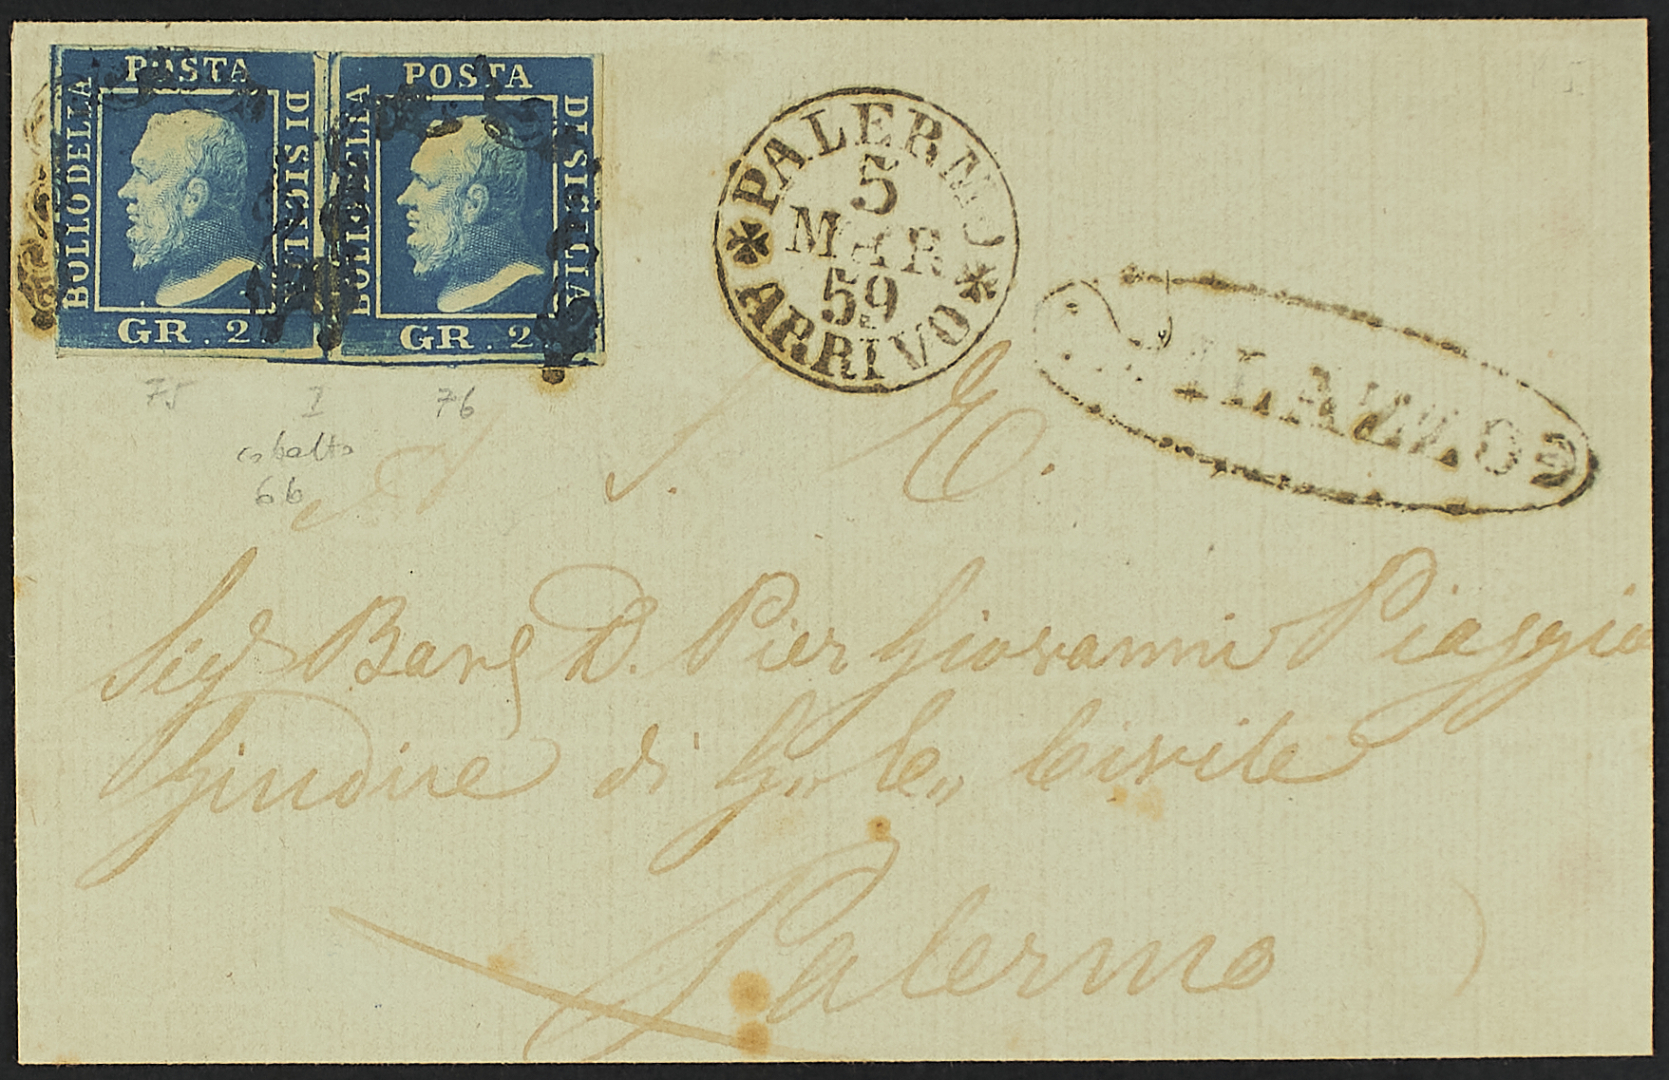 POSTA
BOLLO DELLA
DI SICILIA
GR. 2.
POSTA
BOLLO DELLA
DI SICILIA
GR. 2.
PALERMO
5
MAR
59
ARRIVO
MILAZZO
75 I 76
cobalto
6b
A S. E.
Sigr Bar D. Pier Giovanni Piaggio
Giudice di G. C. Civile
Palermo